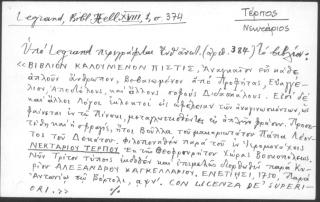 Legrand, Bibl. Hell. XVIII, 1, σ 374
Τέρπος
Νεκτάριος
Ὑπὸ Legrand περιγράφεται (ἀρ. 384) τὸ βιβλίον
«ΒΙΒΛΙΟΝ ΚΑΛΟΥΜΕΝΟΝ ΠΙΣΤΙΣ, Ἀναγκαῖον εἰς κάθε
ἁπλοῦν ἄνθρωπον, βεβαιωμένον ἀπὸ Προφήτας, Εὐαγγέ-
λιον, Ἀποστόλους, καὶ ἄλλους σοφοὺς Διδασκάλους.
καὶ ἄλλοι Λόγοι ἐκλεκτοὶ εἰς ὠφέλειαν τῶν ἀναγινωσκόντων, ὡς
φαίνεται ἐν τῷ Πίνακι, μεταγλωττισθέντες εἰς ἁπλῆν φράσιν.
καὶ ἡ ἤτοι Βοῦλλα τοῦ μακαριωτάτου Πάπα Λέον-
τος τοῦ Δεκάτου. Φιλοπονηθὲν παρὰ τοῦ ἐν Ἱερομονάχοις
ΝΕΚΤΑΡΙΟΥ ΤΕΡΠΟΥ Ἐκ τῆς Θεοφρουρήτου Χώρας Βοσκοπόλεως.
Νῦν Τρίτον τύποις ἐκδοθὲν καὶ ἐπιμελῶς διορθωθὲν παρὰ Κυ-
ρίου ΑΛΕΞΑΝΔΡΟΥ ΚΑΓΚΕΛΛΑΡΙΟΥ. ΕΝΕΤΙΗΣΙ, 1750. Παρὰ
Ἀντωνίῳ τῷ Βόρτολι. αψν΄. CON LICENZA DE' SUPERI-
ORI. »